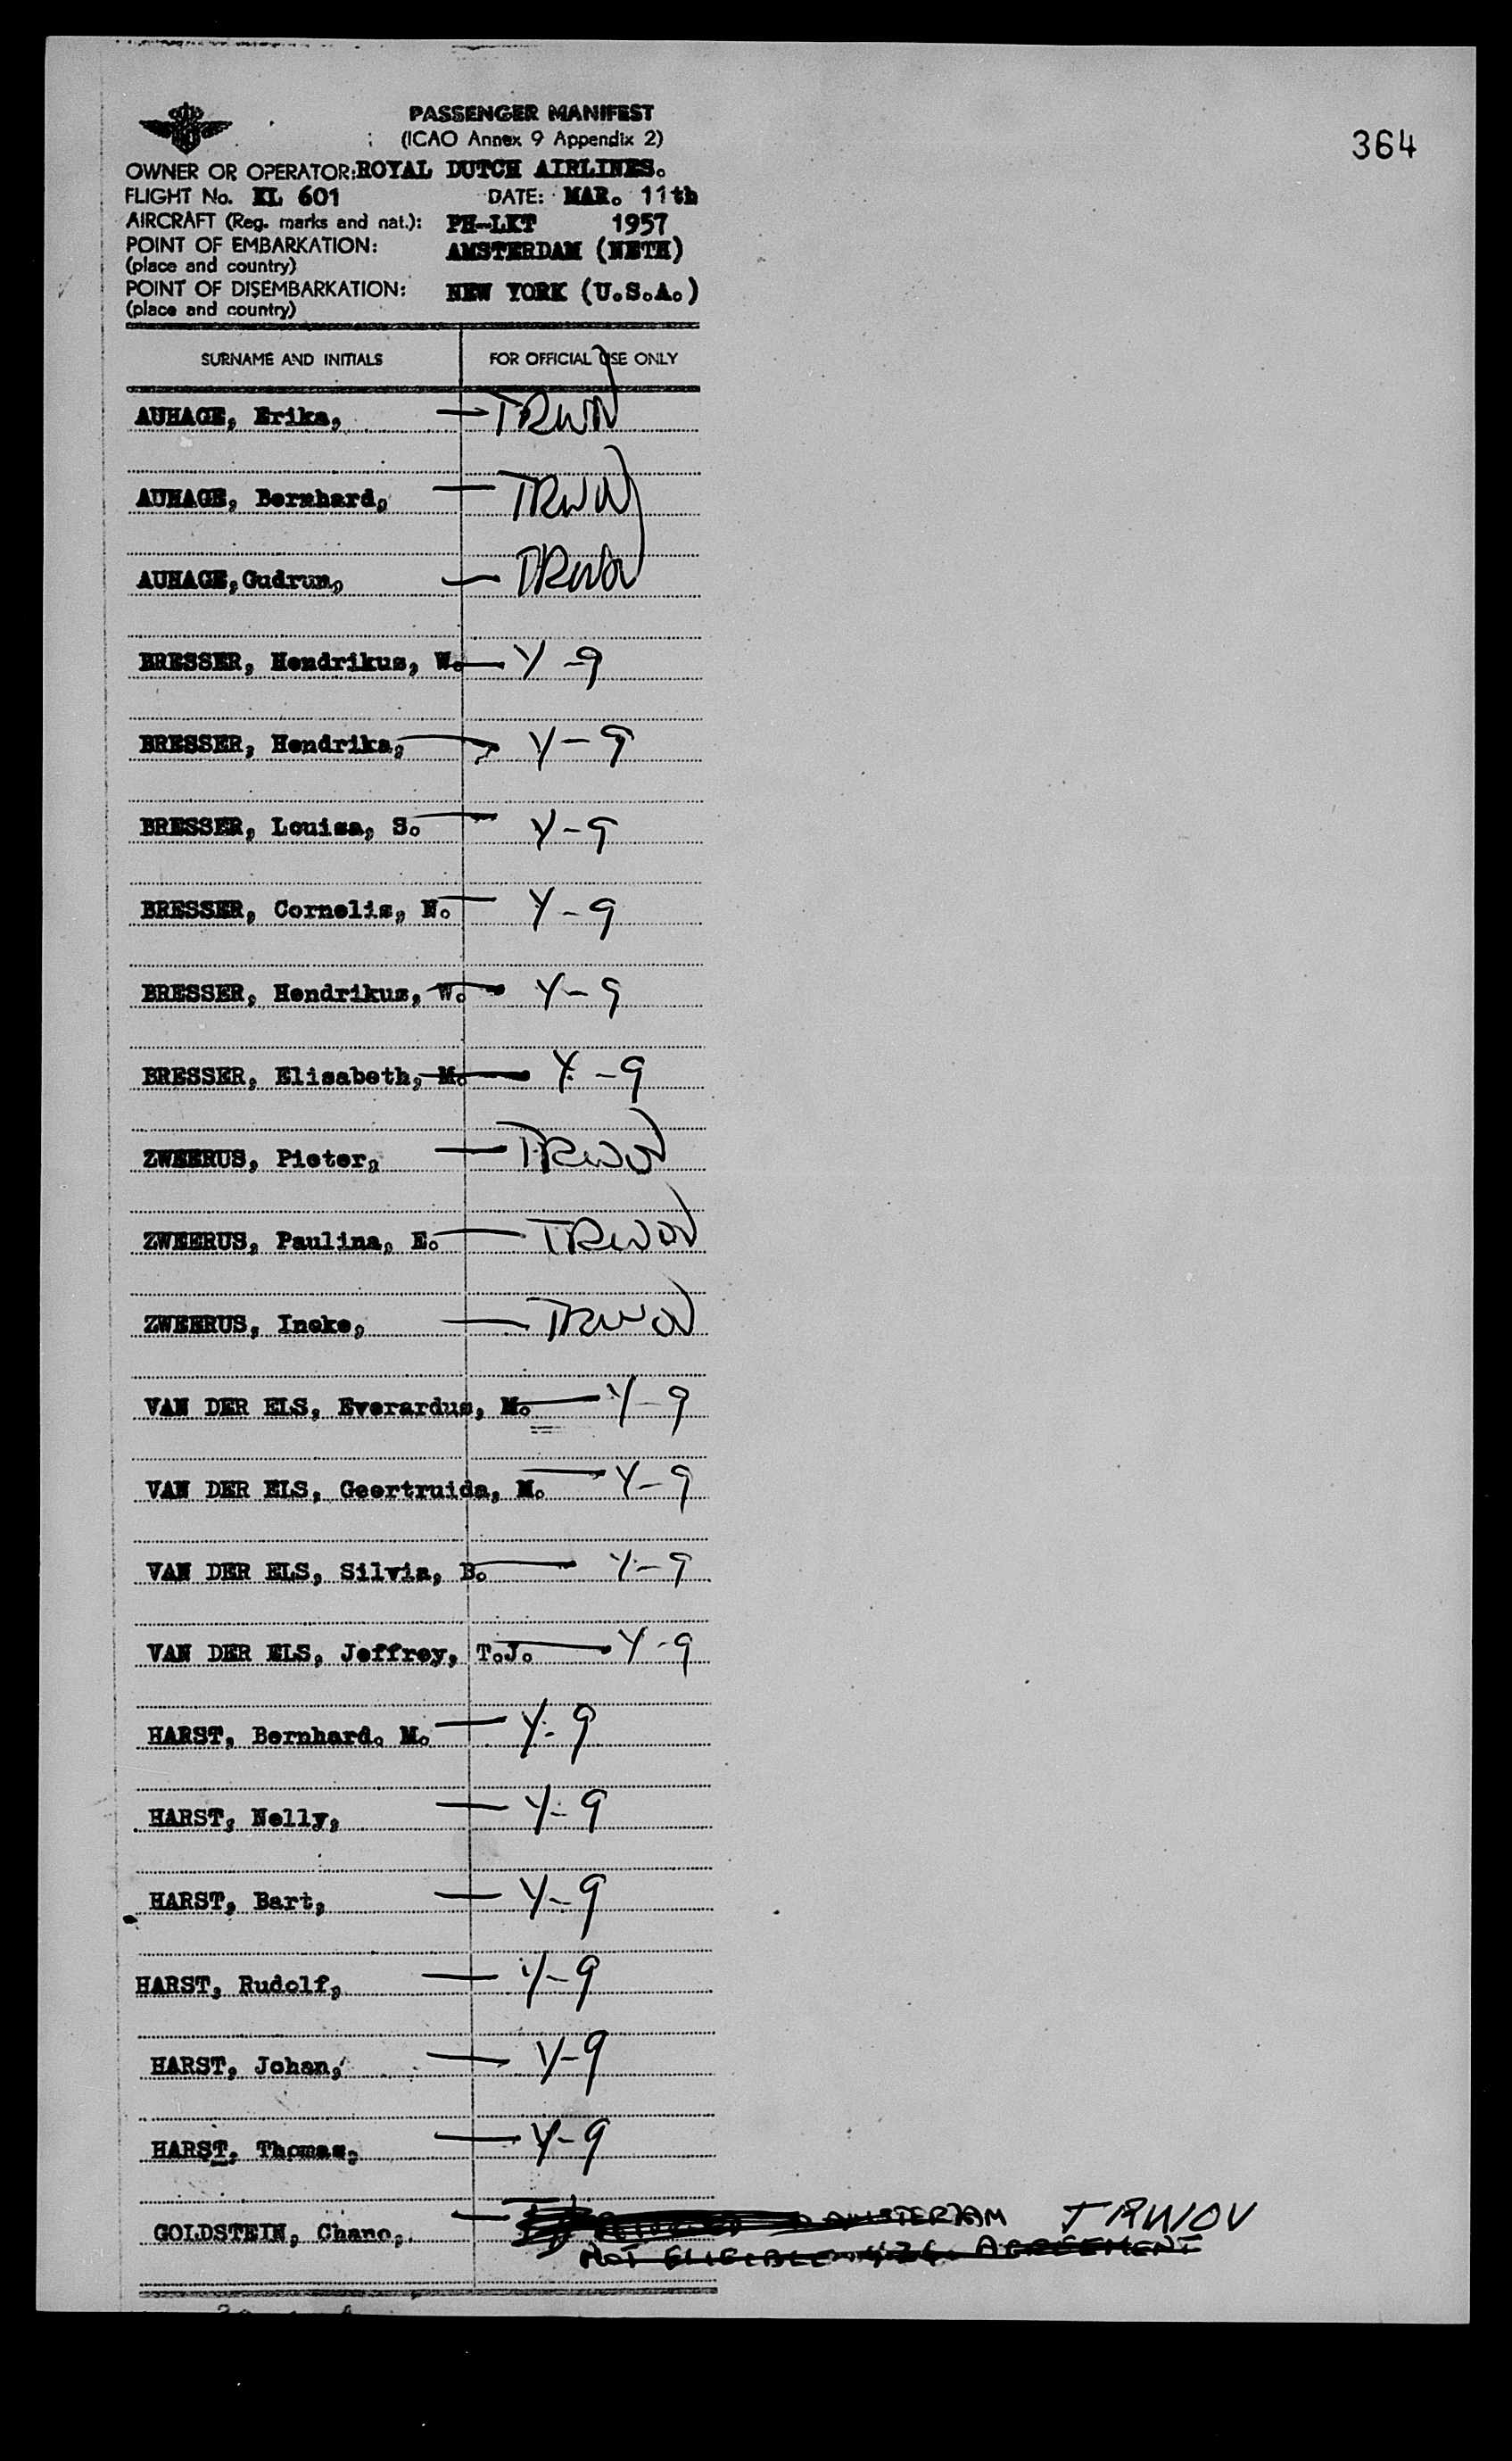 364
PASSENGER MANIFEST
(ICAO Annex 9 Appendix 2)
OWNER OR OPERATOR: ROYAL DUTCH AIRLINES.
FLIGHT No. KL 601 DATE: MAR. 11th
AIRCRAFT (Reg. marks and nat.): PH-LKT 1957
POINT OF EMBARKATION: AMSTERDAM (NETH)
(place and country)
POINT OF DISEMBARKATION: NEW YORK (U.S.A.)
(place and country)
SURNAME AND INITIALS FOR OFFICIAL USE ONLY
AUHAGE, Erika, — TRWOV
AUHAGE, Bernhard, — TRWOV
AUHAGE, Gudrun, — TRWOV
BRESSER, Hendrikus, W. — Y-9
BRESSER, Hendrika, — Y-9
BRESSER, Louisa, S. — Y-9
BRESSER, Cornelis, N. — Y-9
BRESSER, Hendrikus, W. — Y-9
BRESSER, Elisabeth, M. — Y-9
ZWEERUS, Pieter, — TRWOV
ZWEERUS, Paulina, E. — TRWOV
ZWEERUS, Ineke, — TRWOV
VAN DER ELS, Everardus, M. — Y-9
VAN DER ELS, Geertruida, M. — Y-9
VAN DER ELS, Silvia, B. — Y-9
VAN DER ELS, Jeffrey, T.J. — Y-9
HARST, Bernhard. M. — Y-9
HARST, Nelly, — Y-9
HARST, Bart, — Y-9
HARST, Rudolf, — Y-9
HARST, Johan, — Y-9
HARST, Thomas, — Y-9
GOLDSTEIN, Chano, — AMSTERDAM TRWOV
NOT ELIGIBLE AGREEMENT